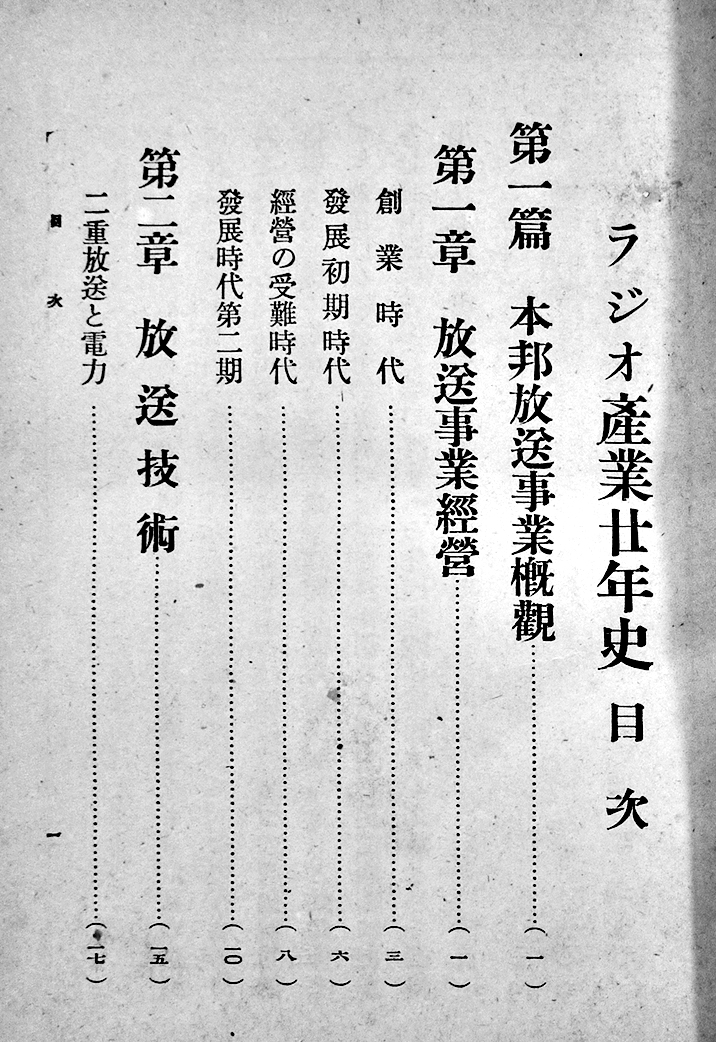 ラジオ產業廿年史 目次
第一篇 本邦放送事業槪觀……(一)
第一章 放送事業經營……(一)
創業時代……(三)
發展初期時代……(六)
經營の受難時代……(八)
發展時代第二期……(一〇)
第二章 放送技術……(一五)
二重放送と電力……(一七)
目次
一